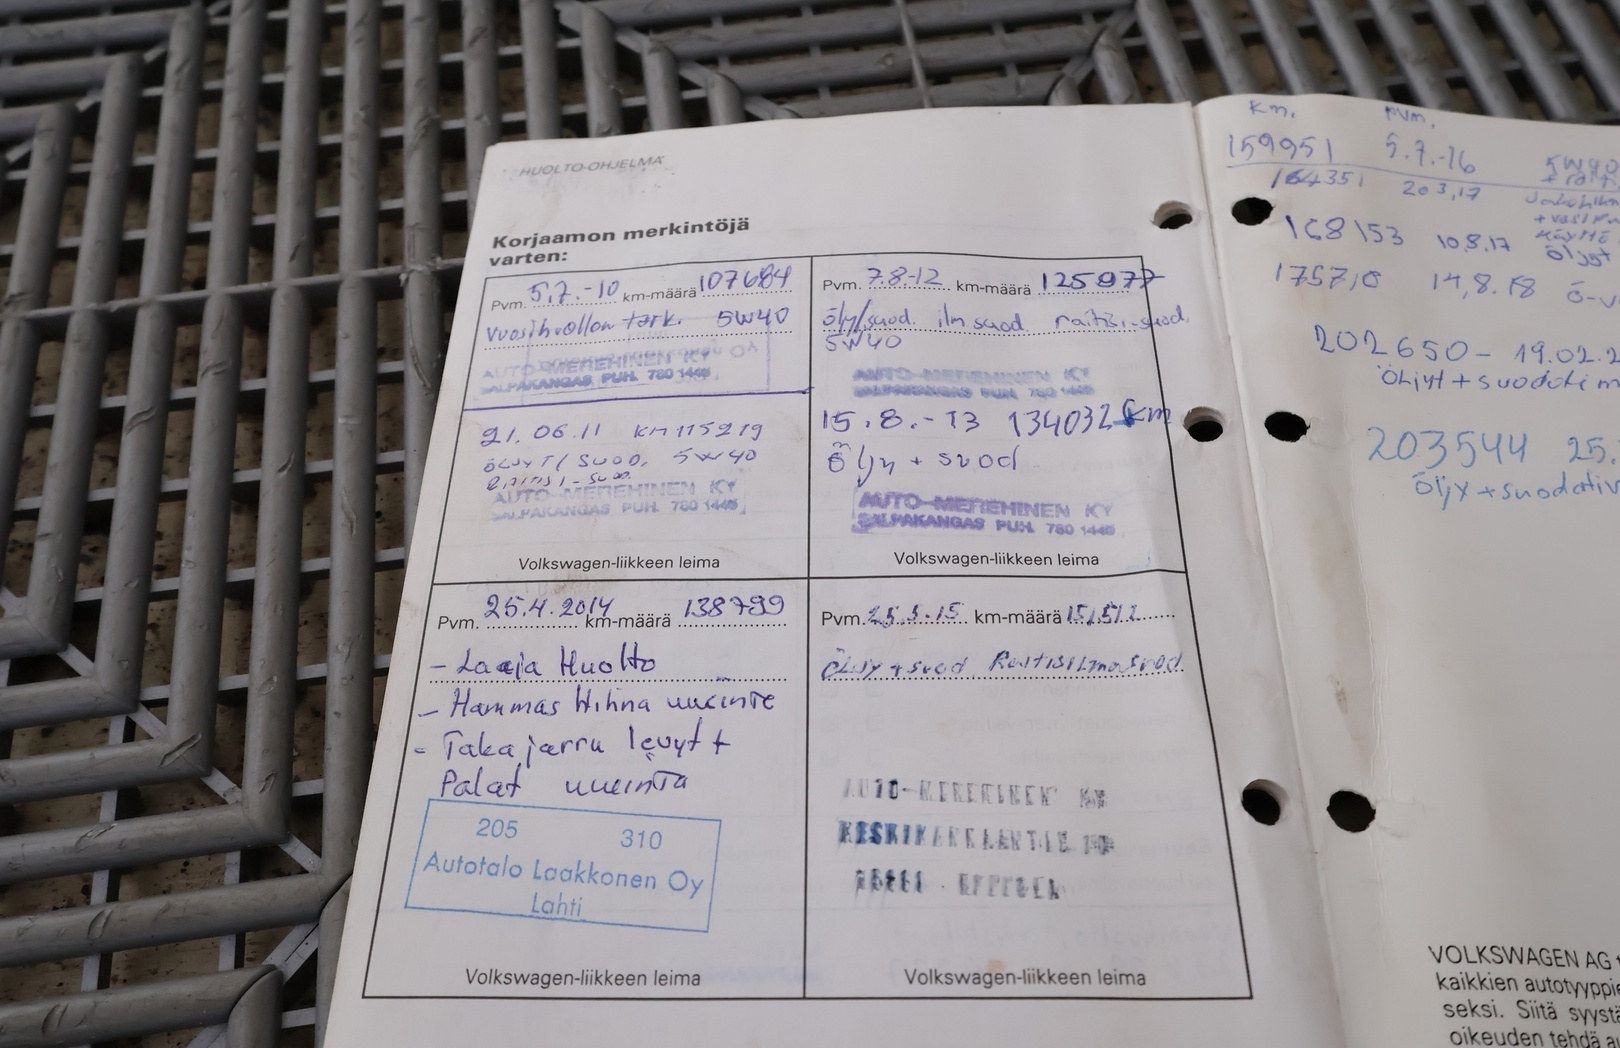 HUOLTO-OHJELMA
Korjaamon merkintöjä
varten:
Pvm. 5.7.-10 km-määrä 107684
Vuosihuollon tark. 5W40
AUTO-MEREHINEN KY
SALPAKANGAS PUH. 780 1445
21.06.11 KM 115219
ÖLJYT/SUOD. 5W40
RAITISI-SUOD.
AUTO-MEREHINEN KY
SALPAKANGAS PUH. 780 1445
Volkswagen-liikkeen leima
Pvm. 7.8-12 km-määrä 125977
öljy/suod. ilmsuod raitisi-suod.
5W40
AUTO-MEREHINEN KY
SALPAKANGAS PUH. 780 1445
15.8.-13 134032 km
Öljy + suod
AUTO-MEREHINEN KY
SALPAKANGAS PUH. 780 1445
Volkswagen-liikkeen leima
Pvm. 25.4.2014 km-määrä 138799
- Laaja Huolto
- Hammas Hihna uusinta
- Takajarru levyt +
Palat uusinta
205 310
Autotalo Laakkonen Oy
Lahti
Volkswagen-liikkeen leima
Pvm. 25.5.15 km-määrä 151512
ÖLJY + suod Raitisilmasuod.
AUTO-MEREHINEN KY
Volkswagen-liikkeen leima
Km. Pvm.
159951 5.7.-16 5W40
164351 20.3.17
168153 10.8.17
ÖLJYT
175710 14.8.18
202650 - 19.02.2
Öljyt + suodati
203544 25.
Öljy + suodativ
VOLKSWAGEN AG
kaikkien autotyyppie
seksi. Siitä syystä
oikeuden tehdä